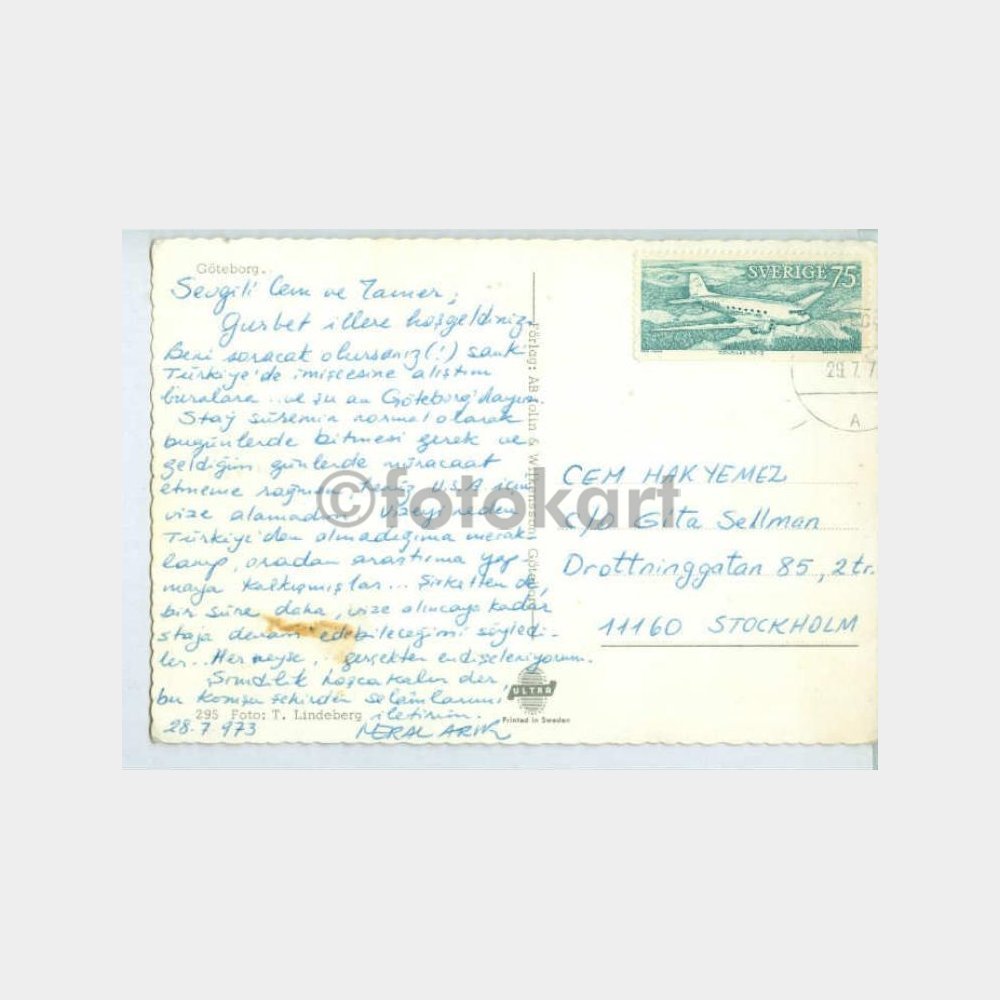 Göteborg.
Sevgili Cem ve Tamer,
Gurbet illere hoşgeldiniz.
Beni soracak olursanız(!) sanki
Türkiye'de imişcesine alıştım
buralara.. ve şu an Göteborg'dayım
Staj süremin normal olarak
bugünlerde bitmesi gerek ve
geldiğim günlerde müracaat
etmeme rağmen, henüz U.S.A için
vize alamadım. Vizeyi neden
Türkiye'den almadığıma merak
lanıp, oradan araştırma yap
maya kalkışmışlar... Şirketten de,
bir süre daha, vize alıncaya kadar
staja devam edebileceğimi söyledi-
ler.. Her neyse.. gerçekten endişeleniyorum.
Şimdilik hoşcakalın der
bu komşu şehirden selâmlarımı
iletirim.
28.7.973
MERAL ARIK
295 Foto: T. Lindeberg
Förlag: AB Molin & Göteborg
ULTRA
Printed in Sweden
SVERIGE 75
29.7.7
A
CEM HAKYEMEZ
c/o Gita Sellman
Drottninggatan 85, 2tr.
11160 STOCKHOLM
©fotokart